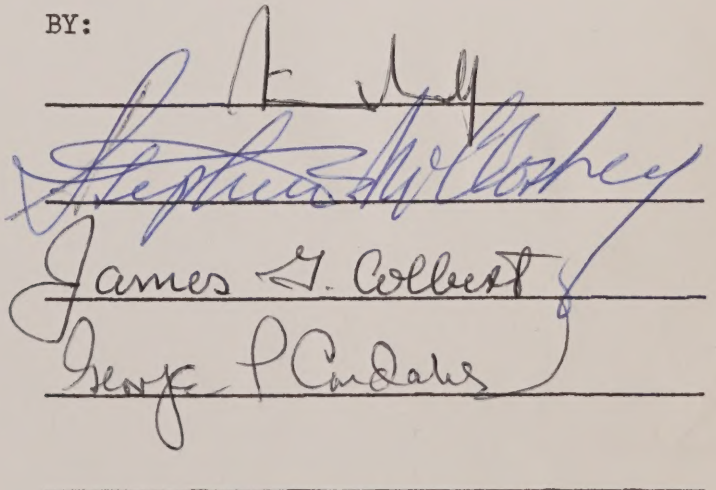 BY:
Stephen E. McCloskey
James G. Colbert
George P Condakes